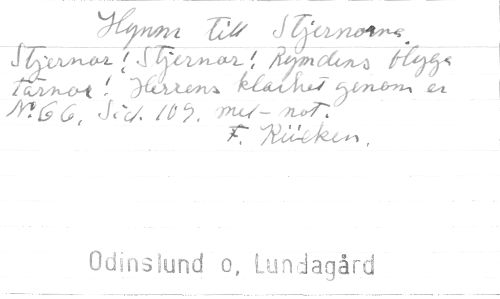 Hymn till Stjernorna.
Stjernor! Stjernor! Rymdens blyga
tärnor! Herrens klarhet genom er
No. 66, Sid. 109. mel- not.
F. Kücken.
Odinslund o, Lundagård